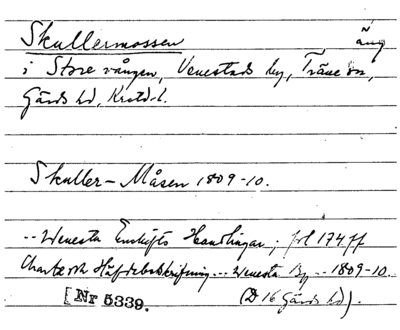 Skullermossen äng
i Store vången, Venestads by, Träne sn,
Gärds hd, Krstd. l.
Skuller-Måsen 1809-10.
.. Wenesta Enskifts Handlingar, fol 174 ff
Charta och Häfdebeskrifning .. Wenesta By .. 1809-10.
[Nr 5339. (D 16 Gärds hd).